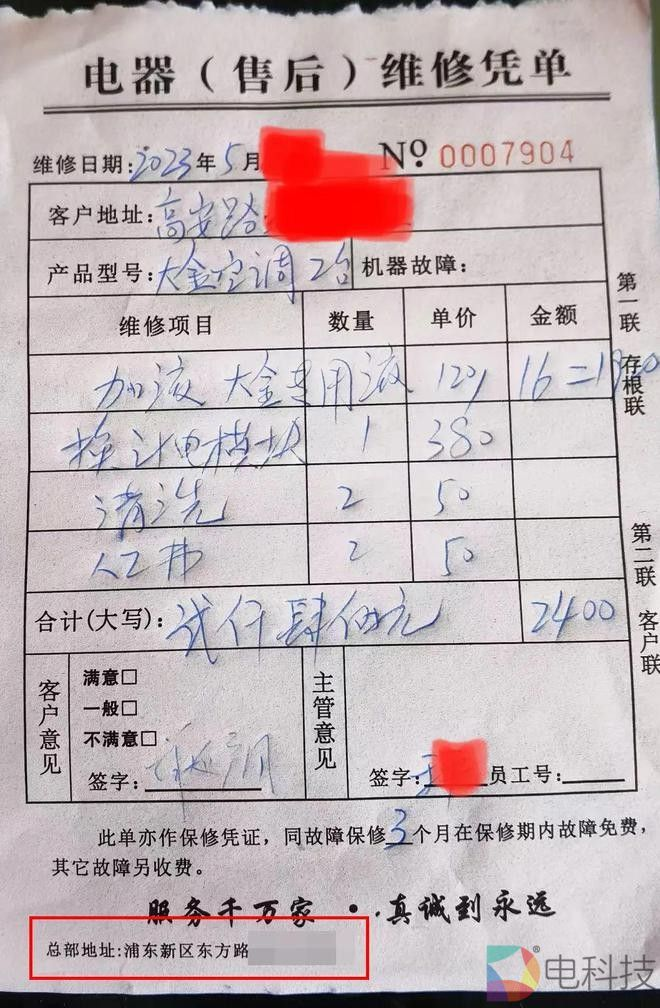 电器（售后）维修凭单
维修日期：2023年5月
№ 0007904
客户地址：高安路
产品型号：大金空调 2台 机器故障：
维修项目 数量 单价 金额
加液 大金专用液 120 16=1920
换计电模块 1 380
清洗 2 50
人工费 2 50
合计(大写)：贰仟肆佰元 2400
客户意见
满意□
一般□
不满意□
签字：
主管意见
签字： 员工号：
第一联 存根联
第二联 客户联
此单亦作保修凭证，同故障保修3个月在保修期内故障免费，
其它故障另收费。
服务千万家 · 真诚到永远
总部地址:浦东新区东方路
电科技